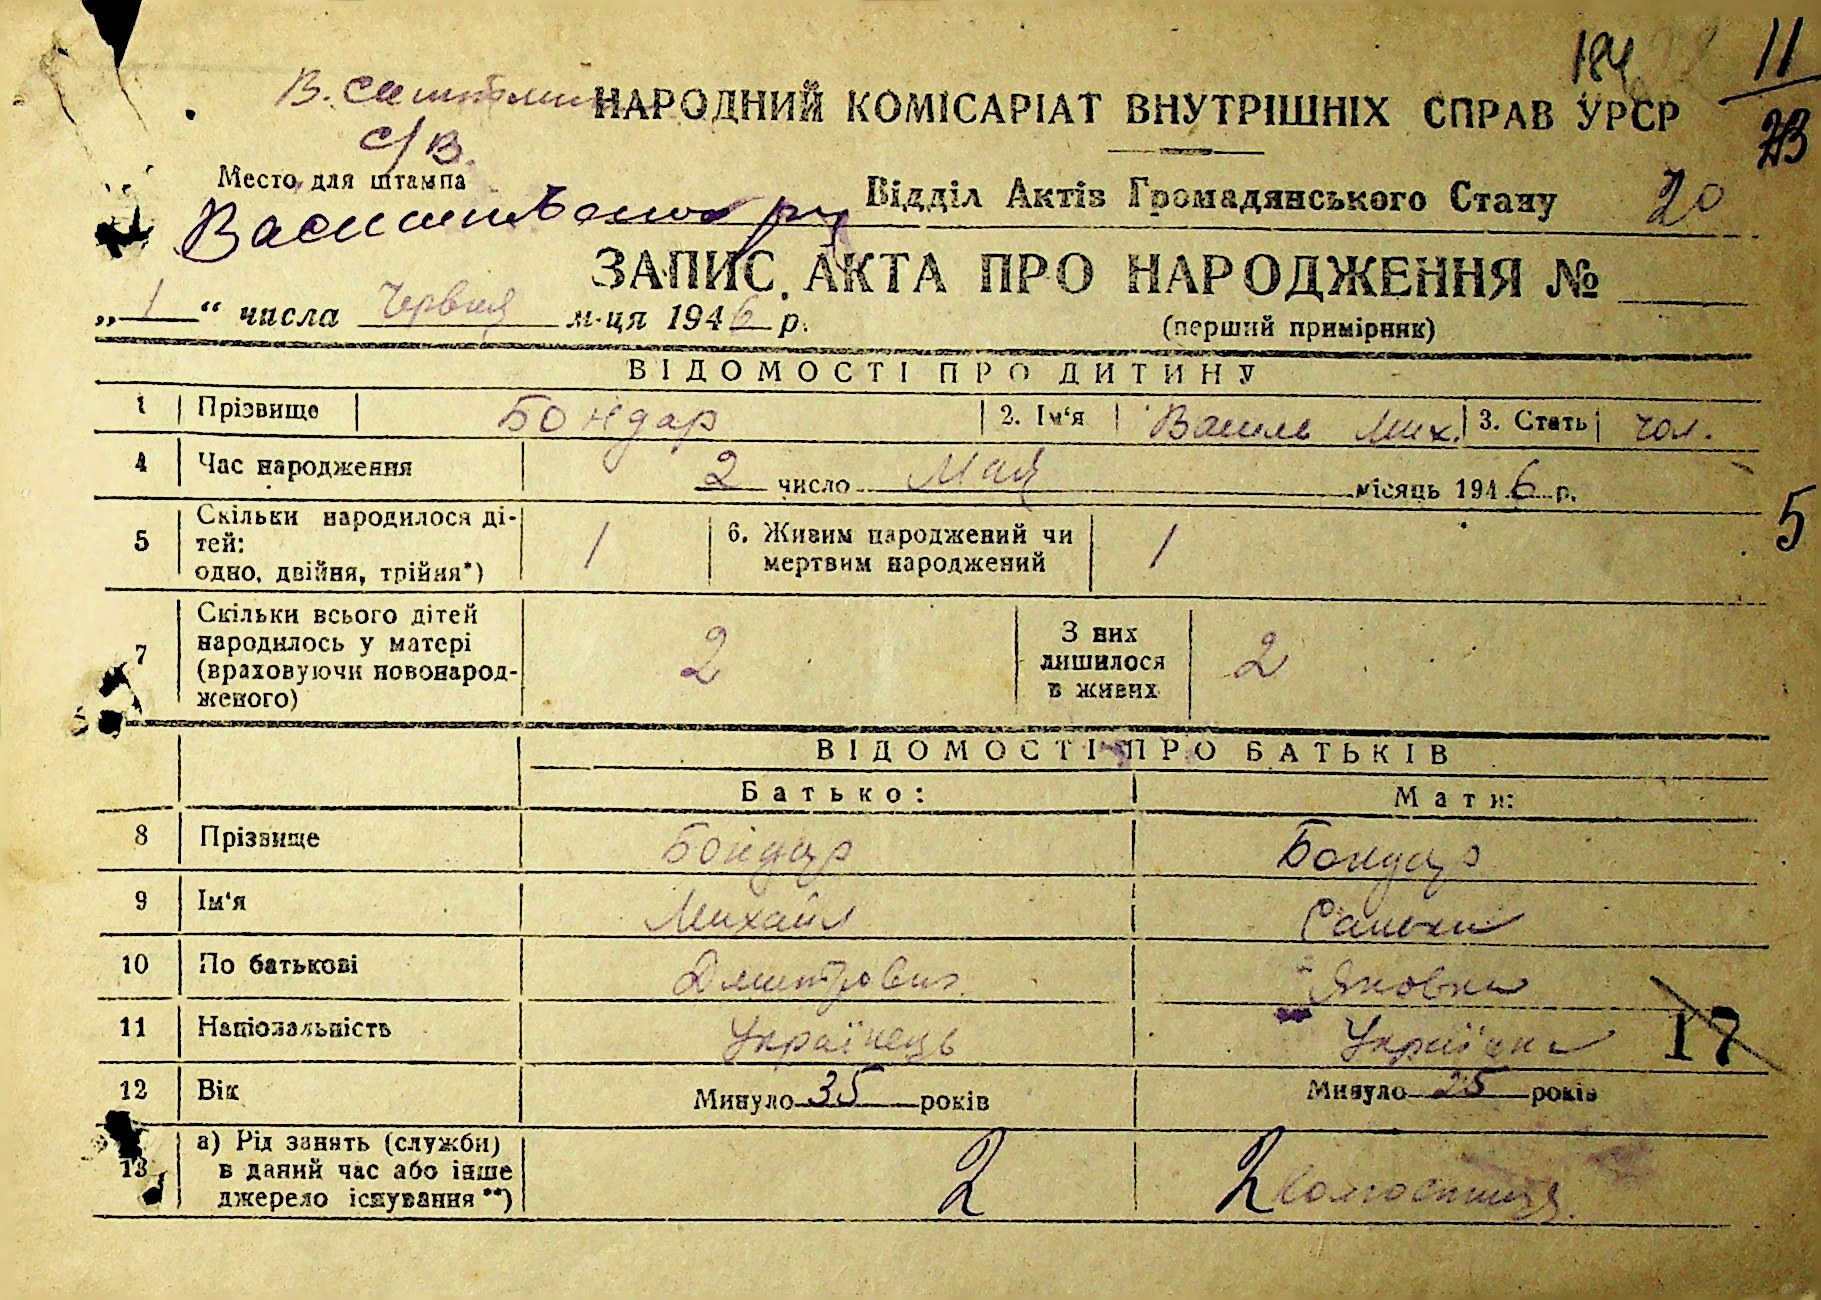 184 11
23
НАРОДНИЙ КОМІСАРІАТ ВНУТРІШНІХ СПРАВ УРСР
С/В.
Место для штампа
Відділ Актів Громадянського Стану 20
ЗАПИС АКТА ПРО НАРОДЖЕННЯ №
„1“ числа Червня м-ця 1946 р.
(перший примірник)
ВІДОМОСТІ ПРО ДИТИНУ
1 Прізвище Бондар 2. Ім'я Василь Мих. 3. Стать чол.
4 Час народження 2 число Мая місяць 1946 р.
5 Скільки народилося ді-
тей:
одно, двійня, трійня*) 1 6. Живим народжений чи
мертвим народжений 1
5
7 Скільки всього дітей
народилось у матері
(враховуючи новонарод-
женого) 2 З них
лишилося
в живих 2
ВІДОМОСТІ ПРО БАТЬКІВ
Батько: Мати:
8 Прізвище Бондар Бондар
9 Ім'я Михайл
10 По батькові Дмитрович Яковна
11 Національність Українець Українка 17
12 Вік Минуло 35 років Минуло 25 років
13 а) Рід занять (служби)
в даний час або інше
джерело існування**) 2 2 Колгоспниця.